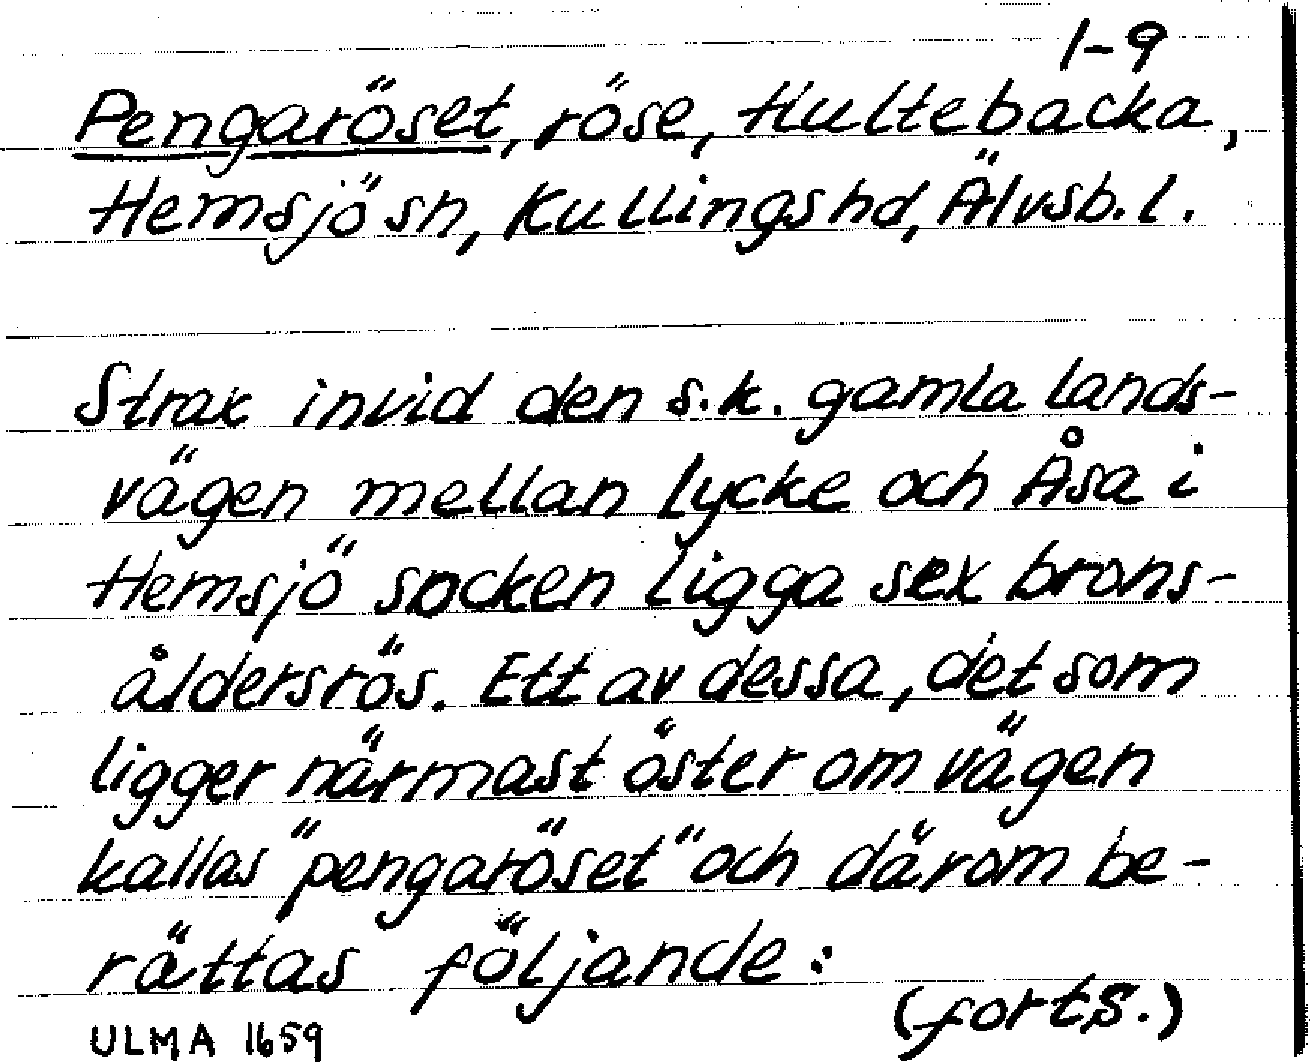 1-9
Pengaröset, röse, Hultebacka,
Hemsjö sn, Kullings hd, Älvsb. l.
Strax invid den s.k. gamla lands-
vägen mellan Lycke och Åsa i
Hemsjö socken ligga sex brons-
åldersrös. Ett av dessa, det som
ligger närmast öster om vägen
kallas "pengaröset" och därom be-
rättas följande:
(forts.)
ULMA 1659